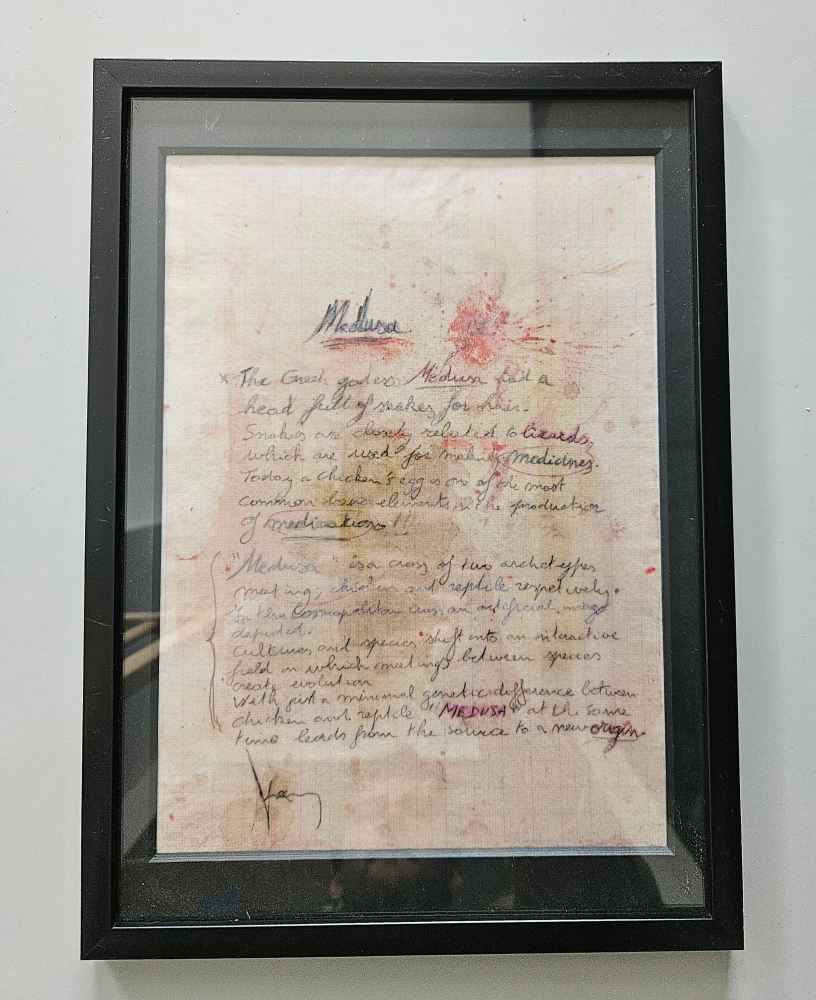 Medusa
x The Greek godess Medusa had a
head full of snakes for hair.
Snakes are closely related to lizards,
which are used for making medicines.
Today a chicken's egg is one of the most
common base elements in the production
of medications!!
"Medusa" is a cross of two archetypes
meeting, chicken and reptile respectively.
In this Cosmopolitan cross an artificial image
depicted.
Cultures and species shift into an interactive
field in which meetings between species
create evolution
With just a minimal genetic difference between
chicken and reptile "MEDUSA" at the same
time leads from the source to a new origin.